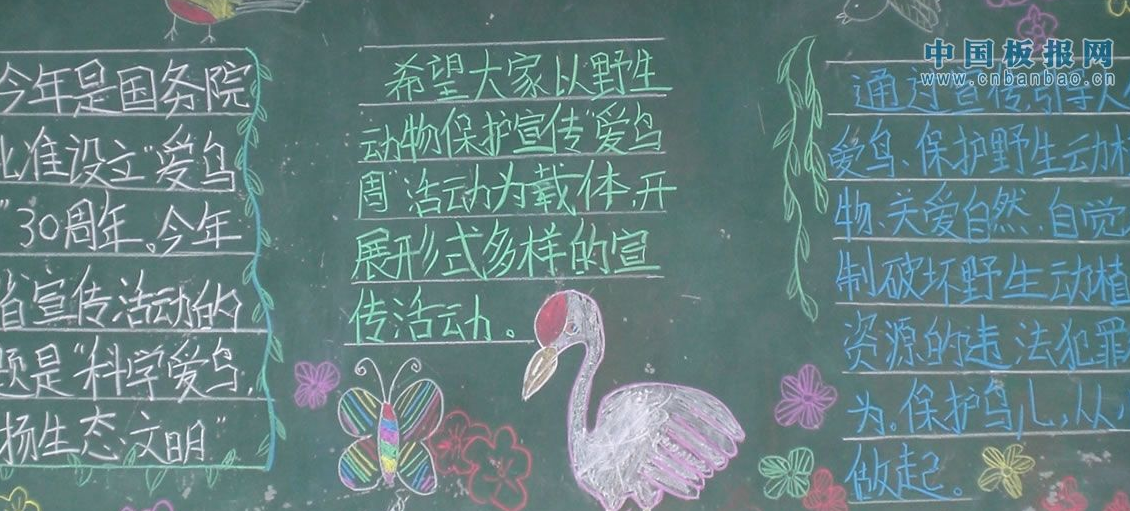 今年是国务院
批准设立"爱鸟
"30周年。今年
省宣传活动的
题是"科学爱鸟，
扬生态文明"
希望大家以野生
动物保护宣传"爱鸟
周"活动为载体，开
展形式多样的宣
传活动。
中国板报网
www.cnbanbao.cn
通过宣传，引导人
爱鸟、保护野生动植
物、关爱自然、自觉
制破坏野生动植
资源的违法犯罪
为。保护鸟儿，从
做起。